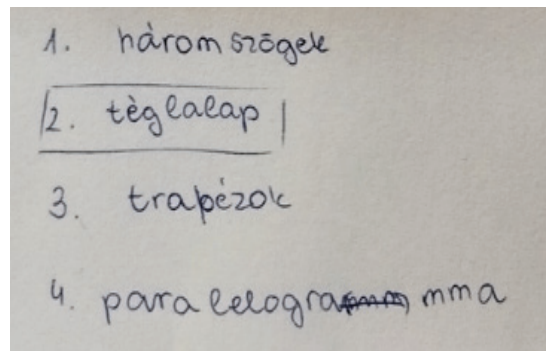 1. háromszögek
2. tèglalap
3. trapézok
4. paralelogramma